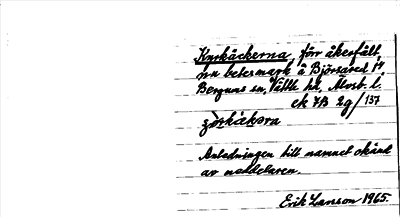 Kyrkåckerna, förr åkerfält,
nu betesmark å Björsared 1⁴
Bergums sn, Vättle hd, Älvsb. l.
ek 7B 2g/137
Anledningen till namnet okänd
av meddelaren.
Erik Larsson 1965.